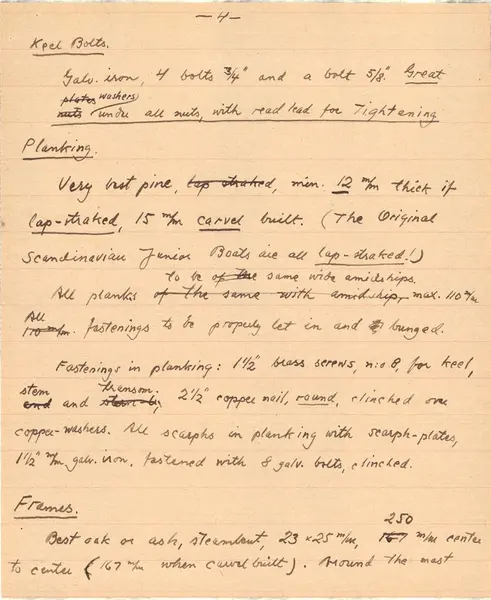 —4—
Keel Bolts.
Galv. iron, 4 bolts 3/4" and a bolt 5/8". Great
plates washers
nuts under all nuts, with read lead for Tightening
Planking.
Very best pine, lap straked, min. 12 m/m thick if
lap-straked, 15 m/m carvel built. (The Original
Scandinavian Junior Boats are all lap-straked!)
to be of the same wide amidships.
All planks of the same with amidship, max. 110 m/m
All
110 m/m. fastenings to be properly let in and bunged.
Fastenings in planking: 1 1/2" brass screws, n:o 8, for keel,
stem transom.
end and stern-, 2 1/2" copper nail, round, clinched over
copper-washers. All scarphs in planking with scarph-plates,
1 1/2" m/m galv. iron, fastened with 8 galv. bolts, clinched.
Frames.
250
Best oak or ash, steambent, 23 x 25 m/m, 167 m/m center
to center (167 m/m when carvel built). Around the mast